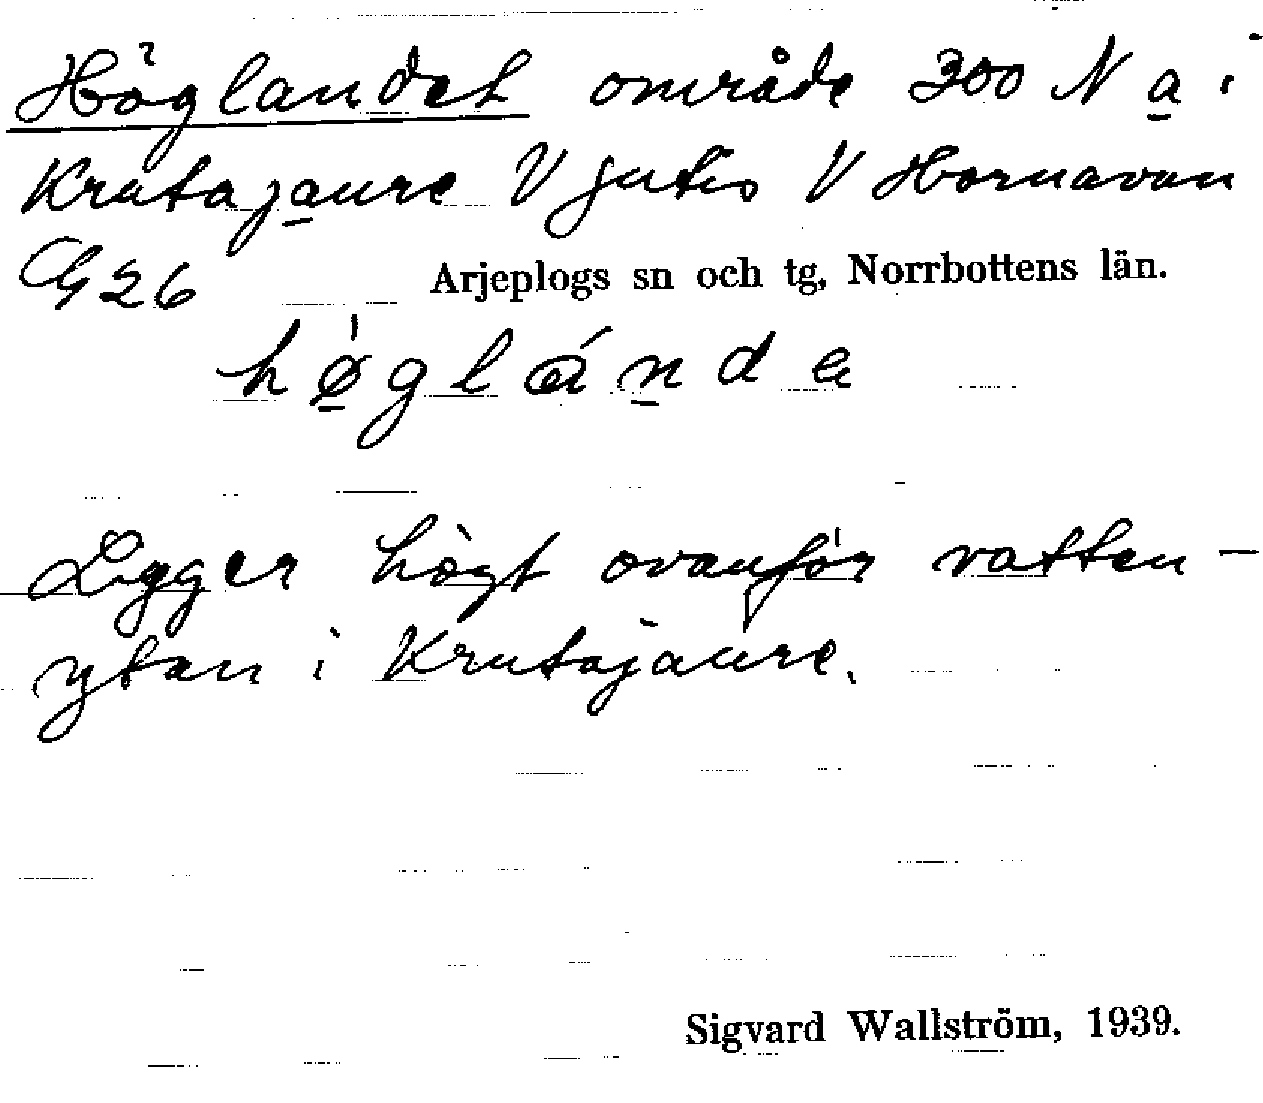 Höglandet område 300 N a i
Krutajaure V Jutis V Hornavan
G26
Arjeplogs sn och tg, Norrbottens län.
høglánda
Ligger högt ovanför vatten-
ytan i Krutajaure.
Sigvard Wallström, 1939.